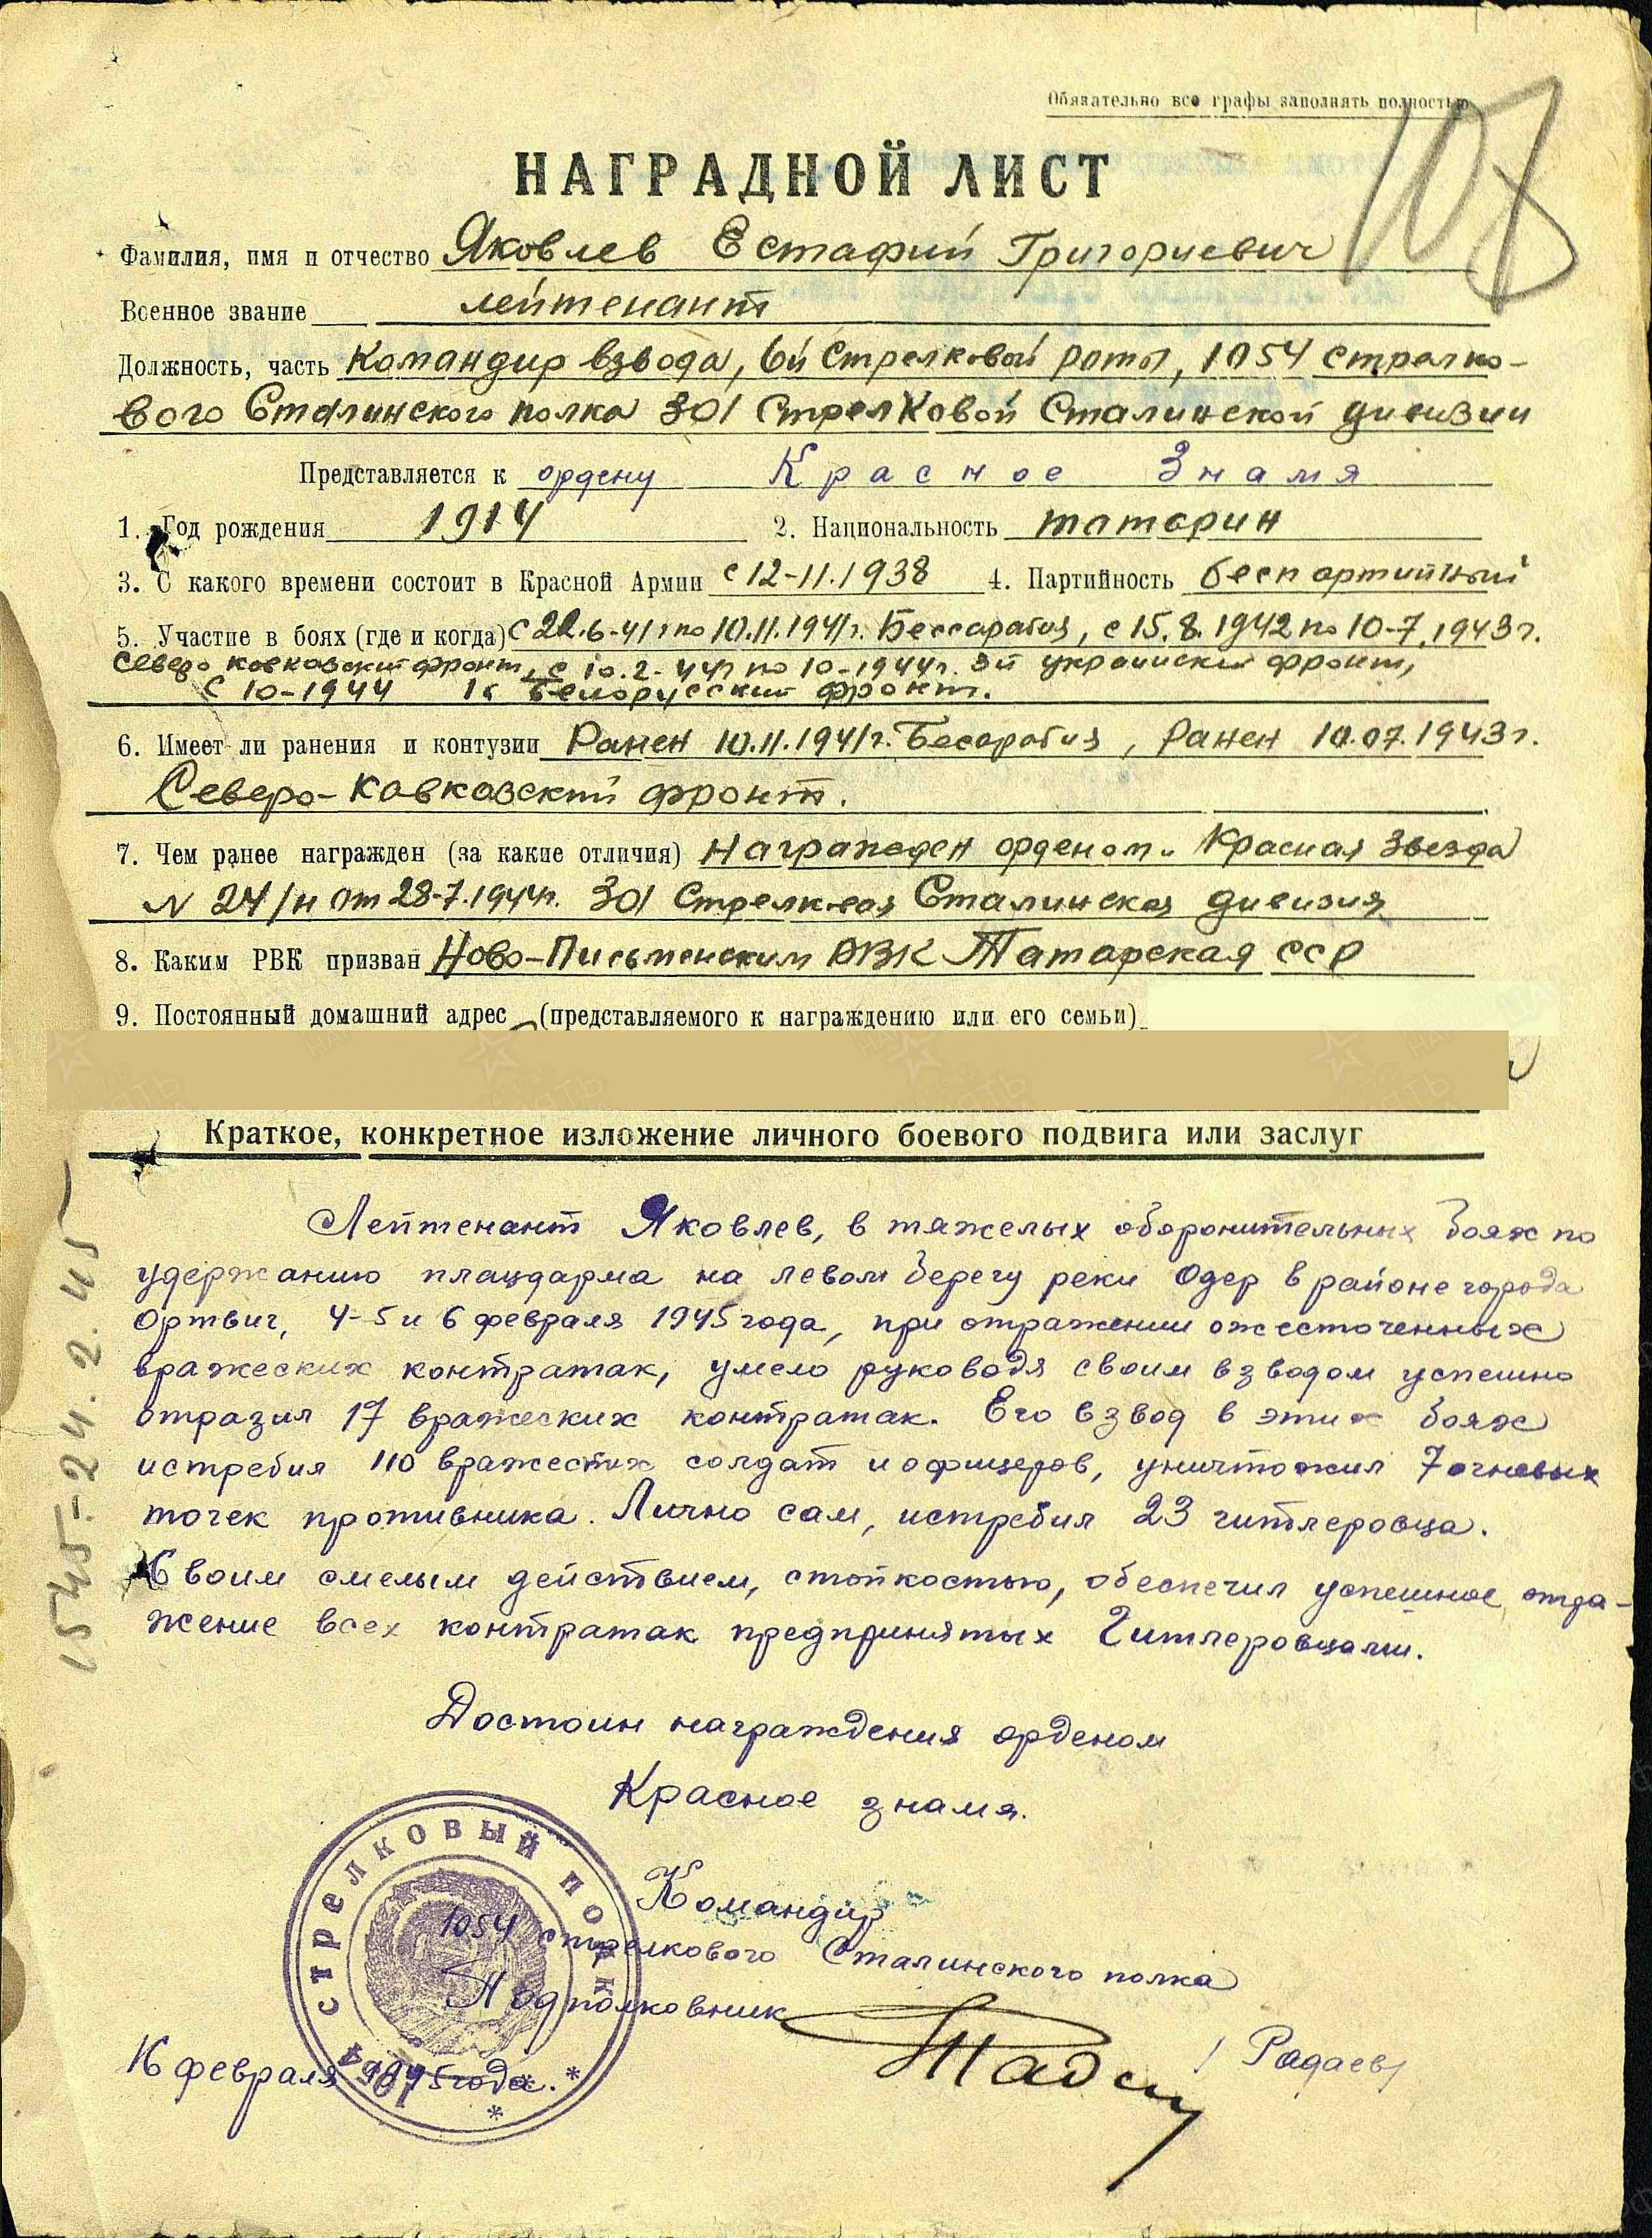 Обязательно все графы заполнять полностью
107
НАГРАДНОЙ ЛИСТ
Фамилия, имя и отчество Яковлев Естафий Григориевич
Военное звание лейтенант
Должность, часть Командир взвода, 6й стрелковой роты, 1054 стрелко-
вого Сталинского полка 301 Стрелковой Сталинской дивизии
Представляется к ордену Красное Знамя
1. Год рождения 1914 2. Национальность татарин
3. С какого времени состоит в Красной Армии с 12-11.1938 4. Партийность беспартийный
5. Участие в боях (где и когда) с 22.6-41г по 10.11.1941г. Бессарабия, с 15.8.1942 по 10-7.1943г.
Северо кавказский фронт, с 10.2-44г по 10-1944г. 3й украинский фронт,
с 10-1944 1й Белорусский фронт.
6. Имеет ли ранения и контузии Ранен 10.11.1941г. Бесарабия, Ранен 10.07.1943г.
Северо-Кавказский фронт.
7. Чем ранее награжден (за какие отличия) Награжден орденом Красная Звезда
N 24/н от 28-7.1944г. 301 Стрелковая Сталинская дивизия
8. Каким РВК призван Ново-Письменским РВК Татарская ССР
9. Постоянный домашний адрес (представляемого к награждению или его семьи)
Краткое, конкретное изложение личного боевого подвига или заслуг
Лейтенант Яковлев, в тяжелых оборонительных боях по
удержанию плацдарма на левом берегу реки Одер в районе города
Ортвиг, 4-5 и 6 февраля 1945 года, при отражении ожесточенных
вражеских контратак, умело руководя своим взводом успешно
отразил 17 вражеских контратак. Его взвод в этих боях
истребил 110 вражеских солдат и офицеров, уничтожил 7 огневых
точек противника. Лично сам, истребил 23 гитлеровца.
Своим смелым действием, стойкостью, обеспечил успешное отра-
жение всех контратак предпринятых Гитлеровцами.
Достоин награждения орденом
Красное знамя.
Командир
1054 стрелкового Сталинского полка
Подполковник / Радаев/
16 февраля 1945 года.
СТРЕЛКОВЫЙ ПОЛК
1054
1545-24.2.45